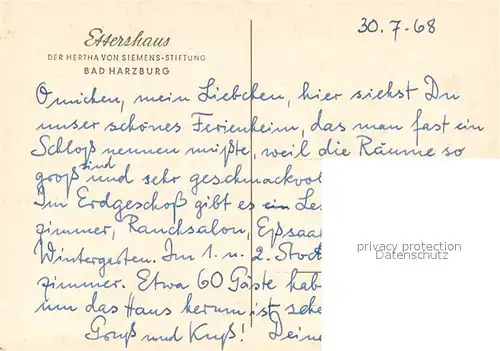 30.7.68
Ettershaus
DER HERTHA VON SIEMENS-STIFTUNG
BAD HARZBURG
Omichen, mein Liebchen, hier siehst Du
unser schönes Ferienheim, das man fast ein
Schloß nennen müßte, weil die Räume so
groß sind und sehr geschmackvol
Im Erdgeschoß gibt es ein Les
zimmer, Rauchsalon, Eßsaa
Wintergarten. Im 1. u. 2. Stock
zimmer. Etwa 60 Gäste hab
um das Haus herum ist sehr
Gruß und Kuß! Deine
privacy protection
Datenschutz